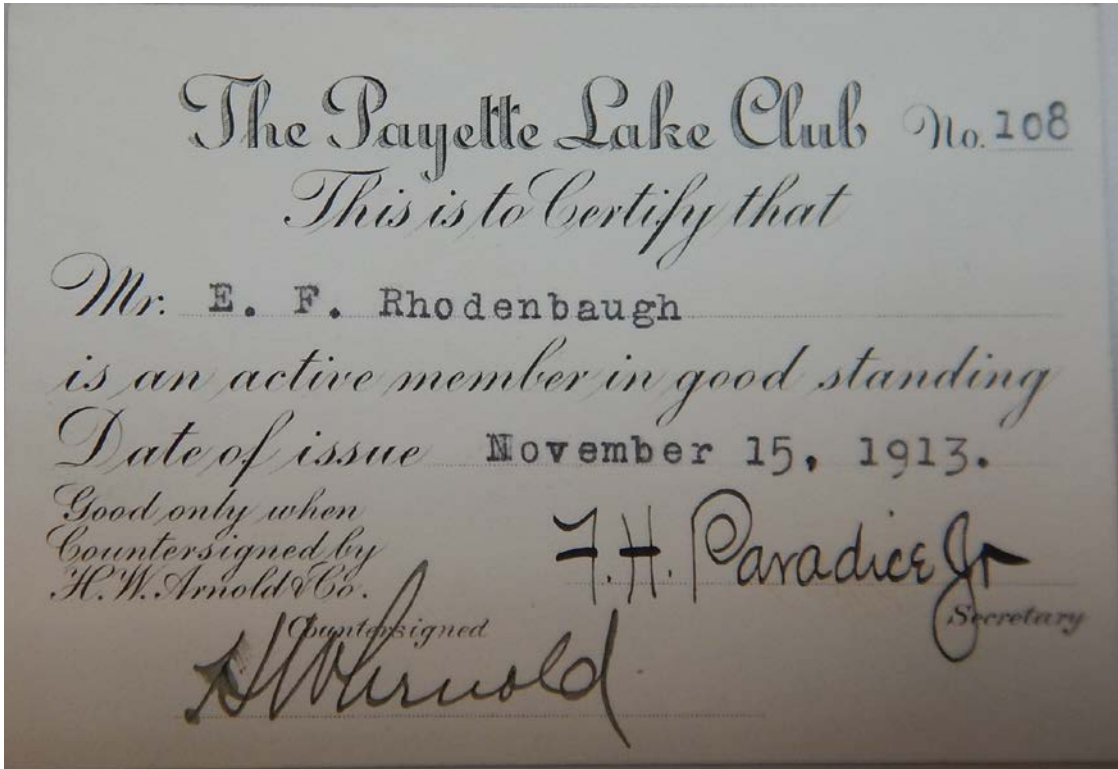 The Payette Lake Club No. 108
This is to Certify that
Mr. E. F. Rhodenbaugh
is an active member in good standing
Date of issue November 15, 1913.
Good only when
Countersigned by
H. W. Arnold & Co.
F. H. Paradice Jr
Secretary
Countersigned
H W Arnold